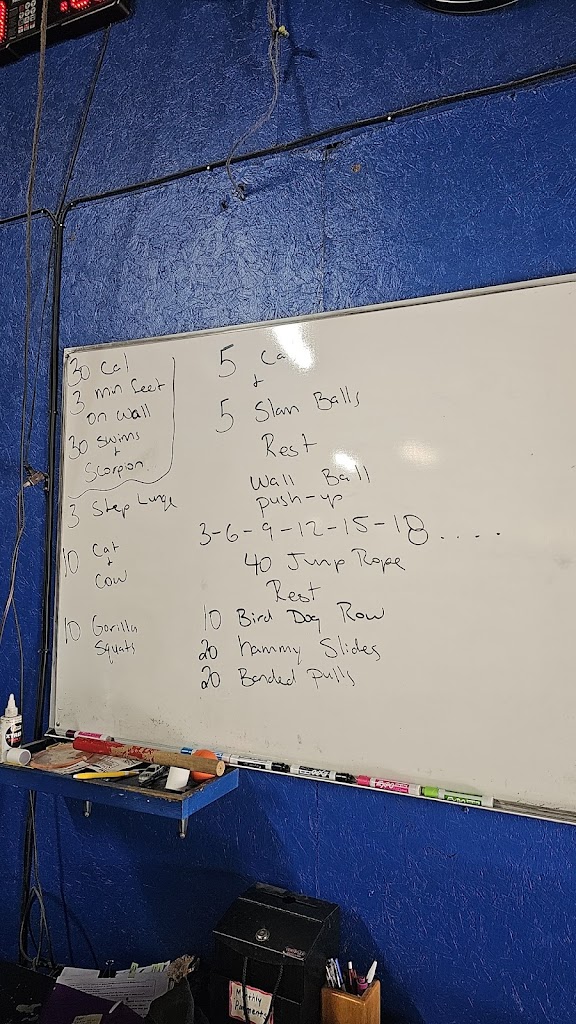 30 Cal
3 min feet
on wall
30 swims
+
Scorpion
3 Step Lunge
10 Cat
+
Cow
10 Gorilla
Squats
5 Ca
+
5 Slam Balls
Rest
Wall Ball
push-up
3-6-9-12-15-18.....
40 Jump Rope
Rest
10 Bird Dog Row
20 hammy Slides
20 Banded pulls
Monthly
Payments